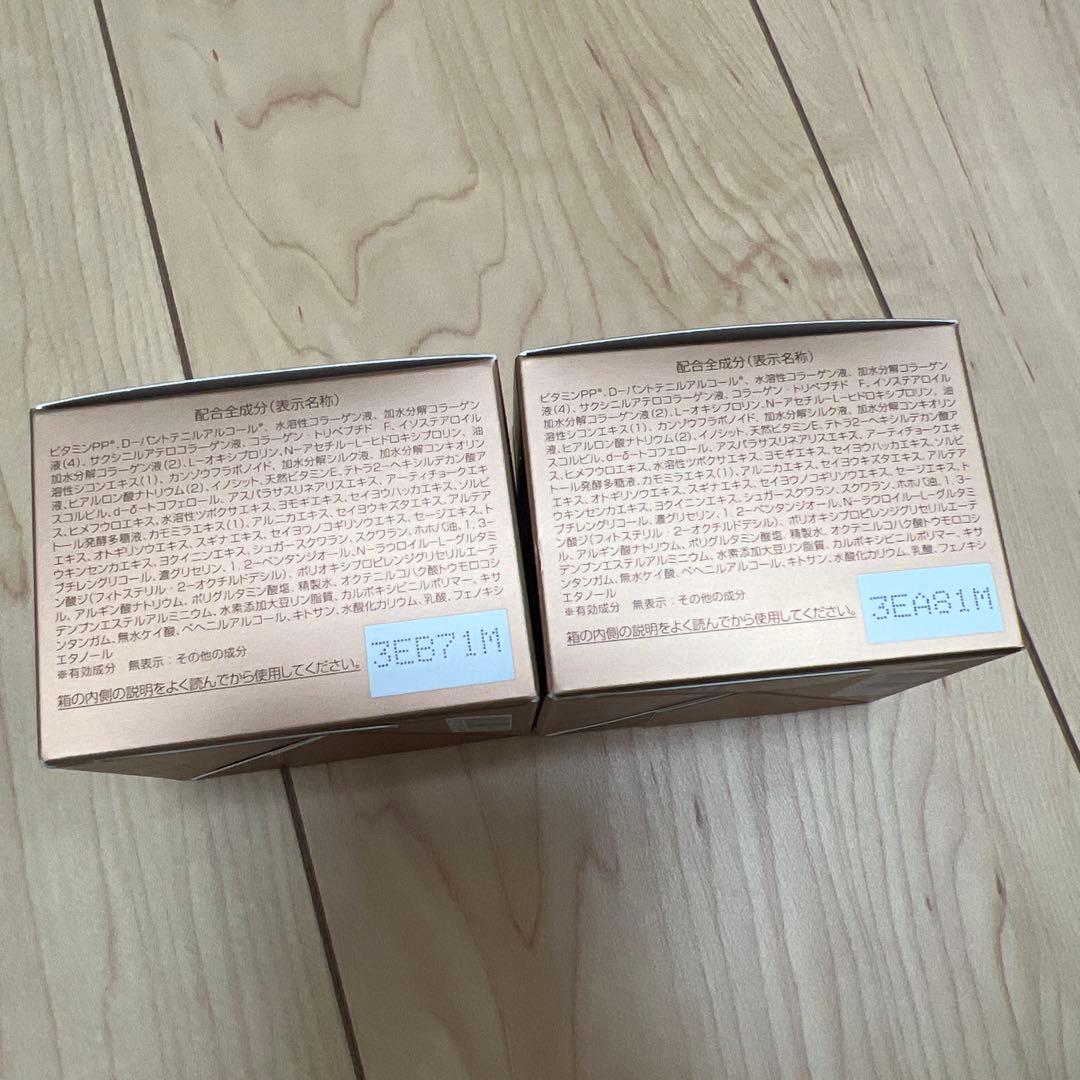 配合全成分(表示名称)
ビタミンPP※、D-パントテニルアルコール※、水溶性コラーゲン液、加水分解コラーゲン
液(4)、サクシニルアテロコラーゲン液、コラーゲン・トリペプチド F、イソステアロイル
加水分解コラーゲン液(2)、L-オキシプロリン、N-アセチル-L-ヒドロキシプロリン、油
溶性シコンエキス(1)、カンゾウフラボノイド、加水分解シルク液、加水分解コンキオリン
液、ヒアルロン酸ナトリウム(2)、イノシット、天然ビタミンE、テトラ2-ヘキシルデカン酸ア
スコルビル、d-δ-トコフェロール、アスパラサスリネアリスエキス、アーティチョークエキ
ス、ヒメフウロエキス、水溶性ツボクサエキス、ヨモギエキス、セイヨウハッカエキス、ソルビ
トール発酵多糖液、カモミラエキス(1)、アルニカエキス、セイヨウキズタエキス、アルテア
エキス、オトギリソウエキス、スギナエキス、セイヨウノコギリソウエキス、セージエキス、ト
ウキンセンカエキス、ヨクイニンエキス、シュガースクワラン、スクワラン、ホホバ油、1,3-
ブチレングリコール、濃グリセリン、1,2-ペンタンジオール、N-ラウロイル-L-グルタミ
ン酸ジ(フィトステリル・2-オクチルドデシル)、ポリオキシプロピレンジグリセリルエーテ
ル、アルギン酸ナトリウム、ポリグルタミン酸塩、精製水、オクテニルコハク酸トウモロコシ
デンプンエステルアルミニウム、水素添加大豆リン脂質、カルボキシビニルポリマー、キサ
ンタンガム、無水ケイ酸、ベヘニルアルコール、キトサン、水酸化カリウム、乳酸、フェノキシ
エタノール
※有効成分 無表示:その他の成分
箱の内側の説明をよく読んでから使用してください。
3EB71M
配合全成分(表示名称)
ビタミンPP※、D-パントテニルアルコール※、水溶性コラーゲン液、加水分解コラーゲン
液(4)、サクシニルアテロコラーゲン液、コラーゲン・トリペプチド F、イソステアロイル
加水分解コラーゲン液(2)、L-オキシプロリン、N-アセチル-L-ヒドロキシプロリン、油
溶性シコンエキス(1)、カンゾウフラボノイド、加水分解シルク液、加水分解コンキオリン
液、ヒアルロン酸ナトリウム(2)、イノシット、天然ビタミンE、テトラ2-ヘキシルデカン酸ア
スコルビル、d-δ-トコフェロール、アスパラサスリネアリスエキス、アーティチョークエキ
ス、ヒメフウロエキス、水溶性ツボクサエキス、ヨモギエキス、セイヨウハッカエキス、ソルビ
トール発酵多糖液、カモミラエキス(1)、アルニカエキス、セイヨウキズタエキス、アルテア
エキス、オトギリソウエキス、スギナエキス、セイヨウノコギリソウエキス、セージエキス、ト
ウキンセンカエキス、ヨクイニンエキス、シュガースクワラン、スクワラン、ホホバ油、1,3-
ブチレングリコール、濃グリセリン、1,2-ペンタンジオール、N-ラウロイル-L-グルタミ
ン酸ジ(フィトステリル・2-オクチルドデシル)、ポリオキシプロピレンジグリセリルエーテ
ル、アルギン酸ナトリウム、ポリグルタミン酸塩、精製水、オクテニルコハク酸トウモロコシ
デンプンエステルアルミニウム、水素添加大豆リン脂質、カルボキシビニルポリマー、キサ
ンタンガム、無水ケイ酸、ベヘニルアルコール、キトサン、水酸化カリウム、乳酸、フェノキシ
エタノール
※有効成分 無表示:その他の成分
箱の内側の説明をよく読んでから使用してください。
3EA81M